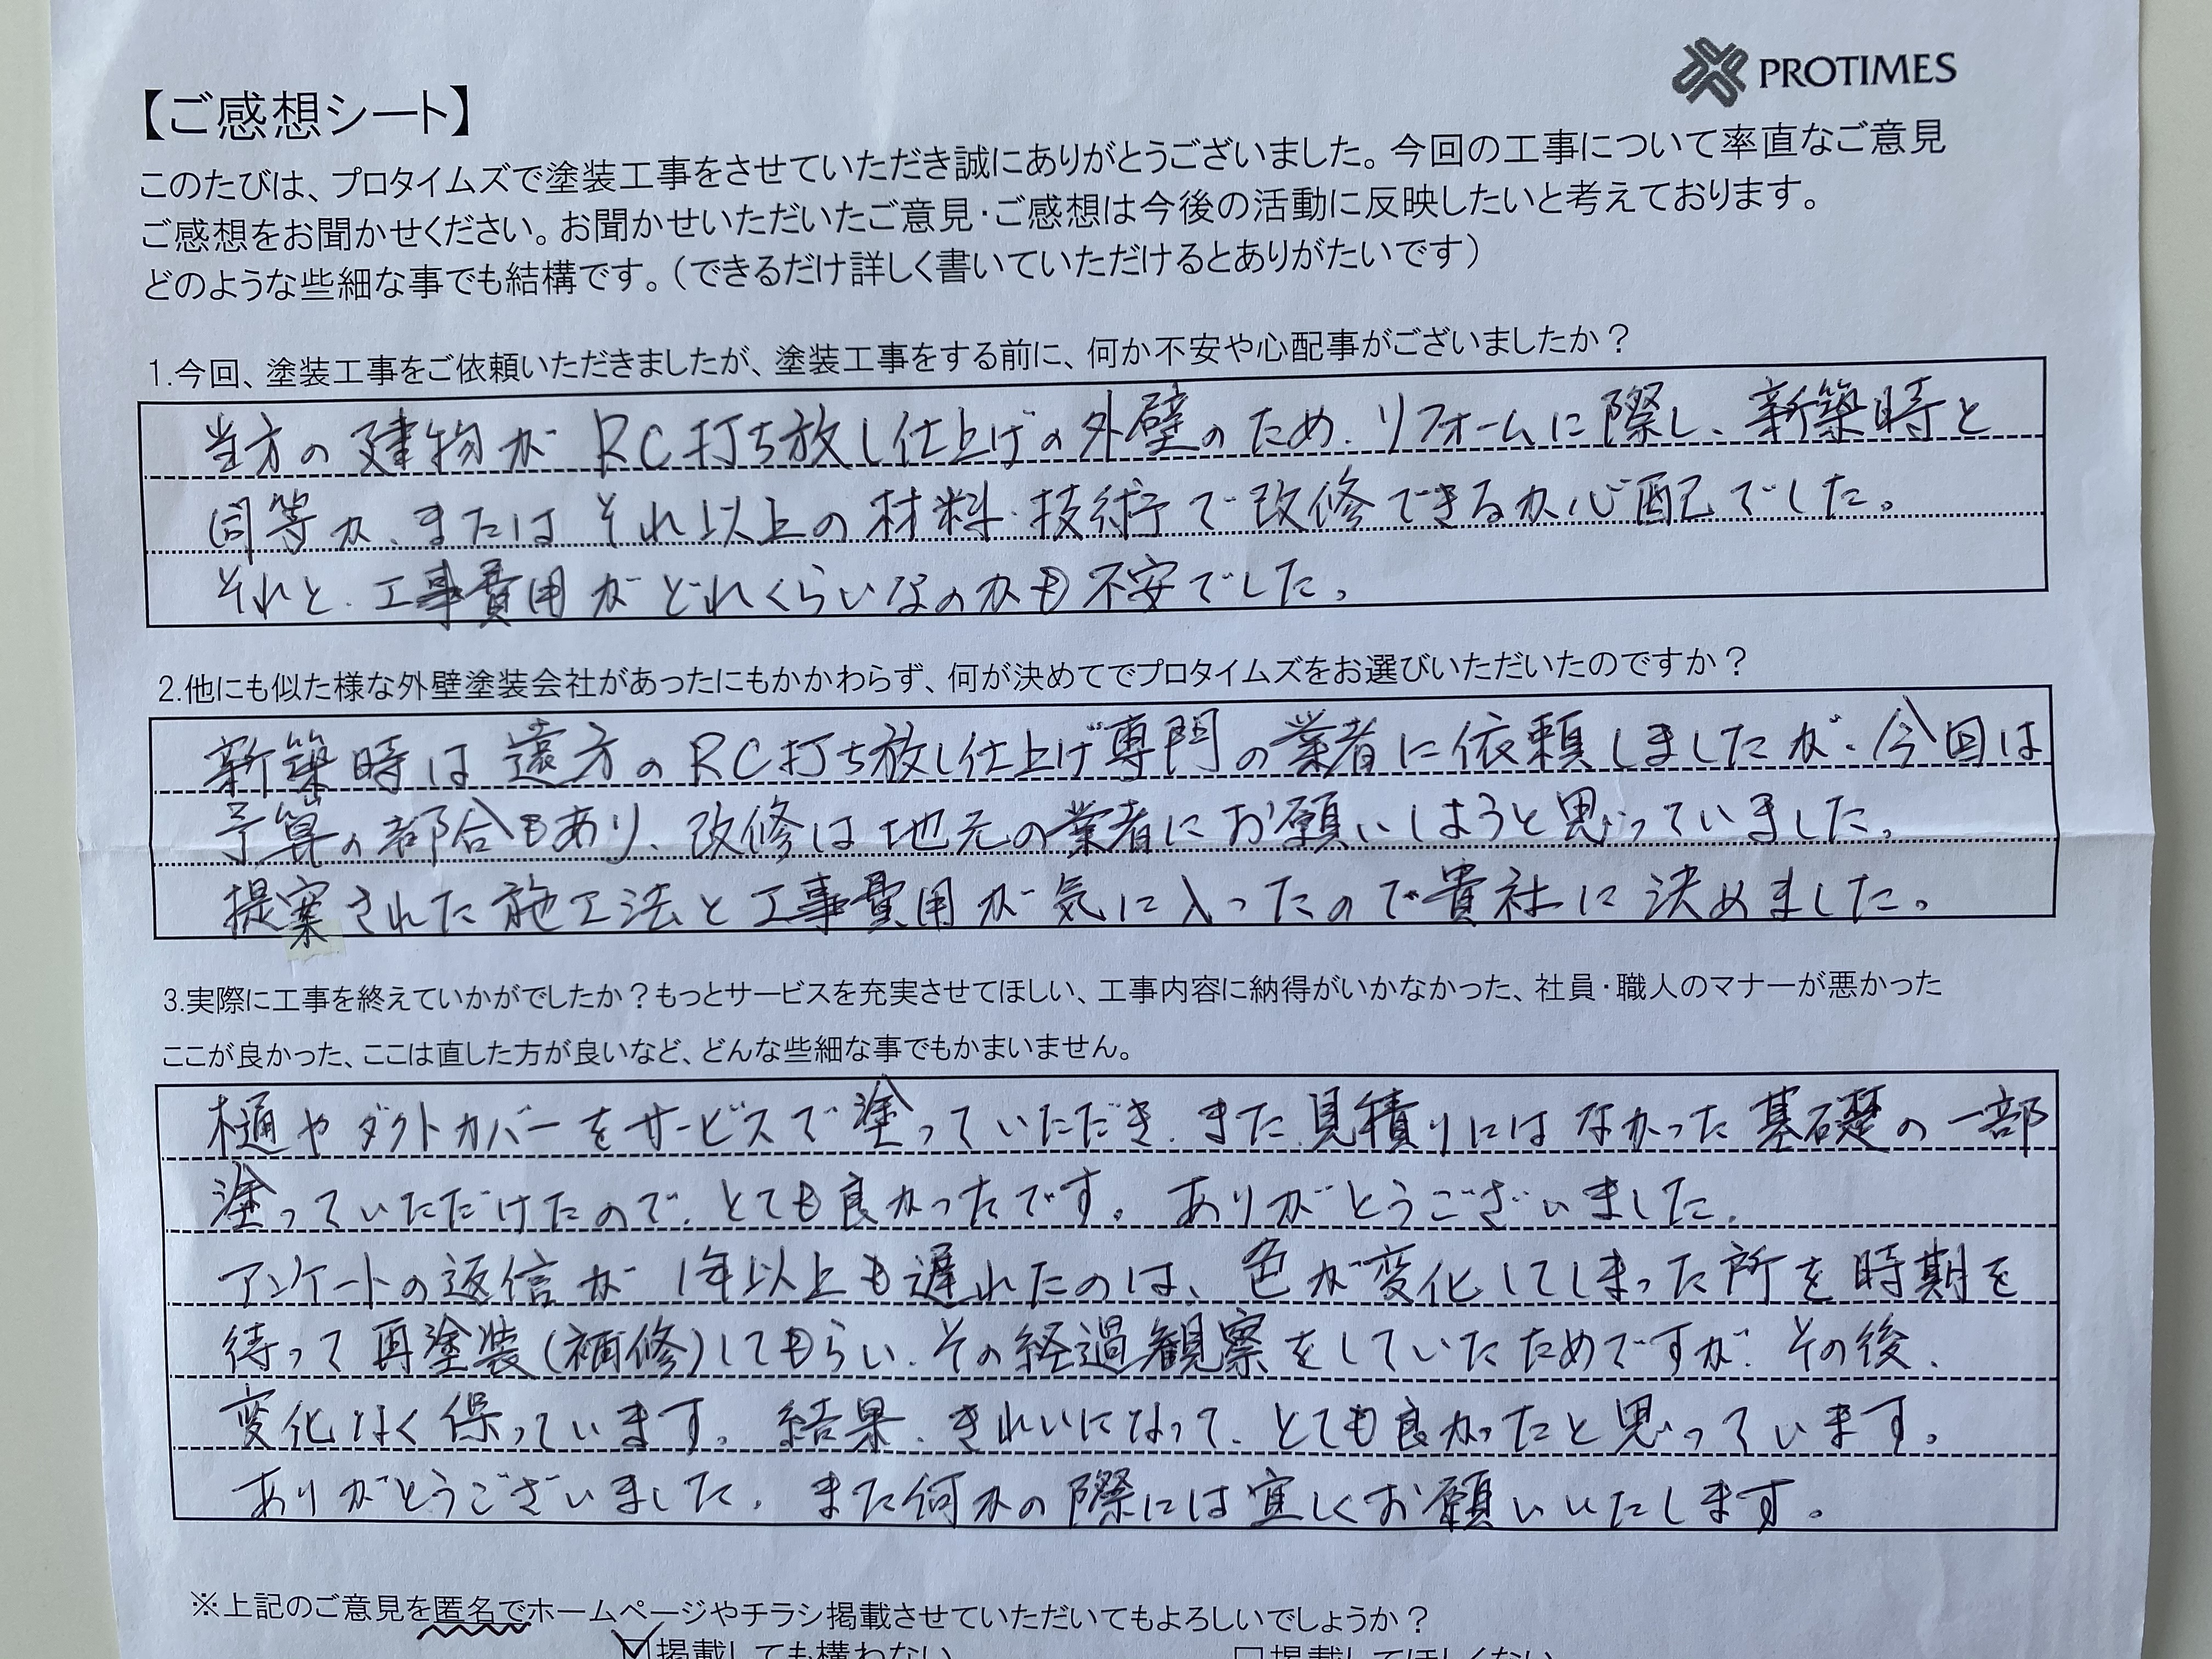 PROTIMES
【ご感想シート】
このたびは、プロタイムズで塗装工事をさせていただき誠にありがとうございました。今回の工事について率直なご意見
ご感想をお聞かせください。お聞かせいただいたご意見・ご感想は今後の活動に反映したいと考えております。
どのような些細な事でも結構です。(できるだけ詳しく書いていただけるとありがたいです)
1.今回、塗装工事をご依頼いただきましたが、塗装工事をする前に、何か不安や心配事がございましたか?
当方の建物がRC打ち放し仕上げの外壁のため、リフォームに際し、新築時と
同等か、またはそれ以上の材料・技術で改修できるか心配でした。
それと、工事費用がどれくらいなのかも不安でした。
2.他にも似た様な外壁塗装会社があったにもかかわらず、何が決めてでプロタイムズをお選びいただいたのですか?
新築時は遠方のRC打ち放し仕上げ専門の業者に依頼しましたが、今回は
予算の都合もあり、改修は地元の業者にお願いしようと思っていました。
提案された施工法と工事費用が気に入ったので貴社に決めました。
3.実際に工事を終えていかがでしたか?もっとサービスを充実させてほしい、工事内容に納得がいかなかった、社員・職人のマナーが悪かった
ここが良かった、ここは直した方が良いなど、どんな些細な事でもかまいません。
樋やダクトカバーをサービスで塗っていただき、また、見積りにはなかった基礎の一部
塗っていただけたので、とても良かったです。ありがとうございました。
アンケートの返信が1年以上も遅れたのは、色が変化してしまった所を時期を
待って再塗装(補修)してもらい、その経過観察をしていたためですが、その後、
変化なく保っています。結果、きれいになって、とても良かったと思っています。
ありがとうございました。また何かの際には宜しくお願いいたします。
※上記のご意見を匿名でホームページやチラシ掲載させていただいてもよろしいでしょうか?
掲載しても構わない □掲載してほしくない